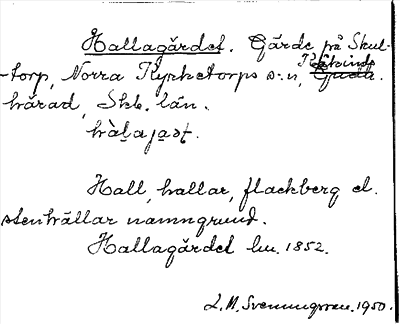 Hallagärdet. Gärde på Skul-
-torp, Norra Kyrketorps s:n, Kåkinds
härad, Skb. län.
Hall, hallar, flackberg el.
stenhällar namngrund.
Hallagärdet lm. 1852.
L.M. Svenungsson. 1950.